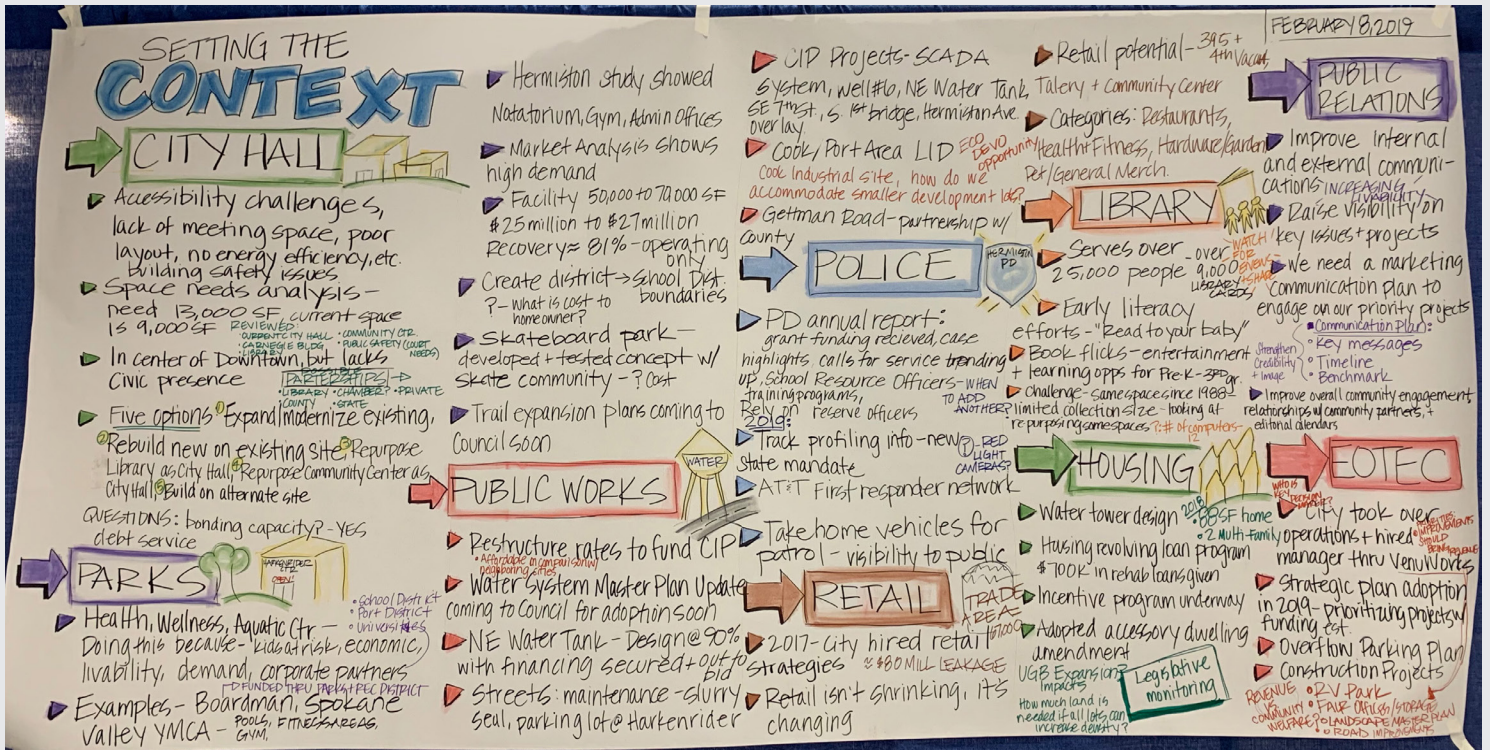 FEBRUARY 8, 2019
SETTING THE
CONTEXT
CITY HALL
Accessibility challenges,
lack of meeting space, poor
layout, no energy efficiency, etc.
building safety issues
Space needs analysis-
need 13,000 SF, current space
is 9,000 SF
REVIEWED:
• CURRENT CITY HALL
• CARNEGIE BLDG.
• LIBRARY
• COMMUNITY CTR
• PUBLIC SAFETY (COURT
NEEDS)
In center of Downtown, but lacks
Civic presence
POSSIBLE
PARTERSHIPS
• LIBRARY • CHAMBER? • PRIVATE
• COUNTY • STATE
Five options: ① Expand/modernize existing,
② Rebuild new on existing site ③ Repurpose
Library as City Hall, ④ Repurpose Community Center as
City Hall, ⑤ Build on alternate site
QUESTIONS: bonding capacity? - YES
debt service
PARKS
HARKENRIDER
CTR
OPEN!
Health, Wellness, Aquatic Ctr -
• School District
• Port District
• Universities
Doing this because- kids at risk, economic,
livability, demand, corporate partners
FUNDED THRU PARKS + REC DISTRICT
Examples- Boardman, Spokane
Valley YMCA - POOLS, FITNESS AREAS,
GYM,
Hermiston study showed
Natatorium, Gym, Admin Offices
Market Analysis shows
high demand
Facility 50,000 to 70,000 SF
$25 million to $27 million
Recovery ≈ 81% - operating
only
Create district → School Dist.
boundaries
? - What is cost to
homeowner?
Skateboard park -
developed + tested concept w/
Skate community - ? Cost
Trail expansion plans coming to
Council soon
PUBLIC WORKS
WATER
Restructure rates to fund CIP
• Affordable in comparison w/
neighboring cities
Water System Master Plan Update
coming to Council for adoption soon
NE Water Tank - Design @ 90%
with financing secured + out to
bid
Streets: maintenance - slurry
seal, parking lot @ Harkenrider
CIP Projects - SCADA
System, well #6, NE Water Tank,
SE 7th St., S. 1st bridge, Hermiston Ave.
overlay
Cook/Port Area LID
ECO
DEVO
opportunity
Cook Industrial site, how do we
accommodate smaller development lots?
Gettman Road - partnership w/
county
POLICE
HERMISTON
PD
PD annual report:
grant funding recieved, case
highlights, calls for service trending
up, School Resource Officers - WHEN
TO ADD
ANOTHER?
training programs,
Rely on reserve officers
2019:
Track profiling info - new
state mandate
? - RED
LIGHT
CAMERAS?
AT&T First responder network
Take home vehicles for
patrol - visibility to public
RETAIL
TRADE
AREA =
2017 - City hired retail
strategies ≈ $80 MILL LEAKAGE
Retail isn't shrinking, it's
changing
Retail potential - 395 +
4th Vacant
Talery + Community Center
Categories: Restaurants,
Health + Fitness, Hardware/Garden
Pet/General Merch.
LIBRARY
Serves over
25,000 people
- over
9,000
LIBRARY
CARDS
WATCH
FOR
ENEWS
+ SHARE
Early literacy
efforts - "Read to your baby"
Book flicks - entertainment
+ learning opps for Pre-K - 3RD gr.
Challenge - same space since 1988 -
limited collection size - looking at
repurposing some spaces ?: # of computers -
12
HOUSING
Water tower design
2018
• 88 SF home
• 2 Multi-family
Housing revolving loan program
$700K in rehab loans given
Incentive program underway
Adopted accessory dwelling
amendment
UGB Expansion?
Impacts
How much land is
needed if all lots can
increase density?
Legislative
monitoring
PUBLIC
RELATIONS
Improve internal
and external communi-
cations
INCREASING
LIVABILITY
Raise visibility on
key issues + projects
We need a marketing
Communication plan to
engage on our priority projects
Communication Plan:
• Key messages
• Timeline
• Benchmark
Strengthen
Credibility
+ Image
Improve overall community engagement,
relationships w/ community partners, +
editorial calendars
EOTEC
WHO IS
KEY DECISION
MAKER?
City took over
operations + hired
manager thru VenuWorks
IMPROVEMENTS
SHOULD
BRING REVENUE
Strategic plan adoption
in 2019 - prioritizing projects w/
funding est.
Overflow Parking Plan
Construction Projects
• RV Park
• FAIR OFFICES/STORAGE
• LANDSCAPE MASTER PLAN
• ROAD IMPROVEMENTS
REVENUE
VS
COMMUNITY
WELFARE?